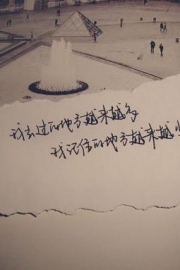 我去过的地方越来越多
我记住的地方越来越少